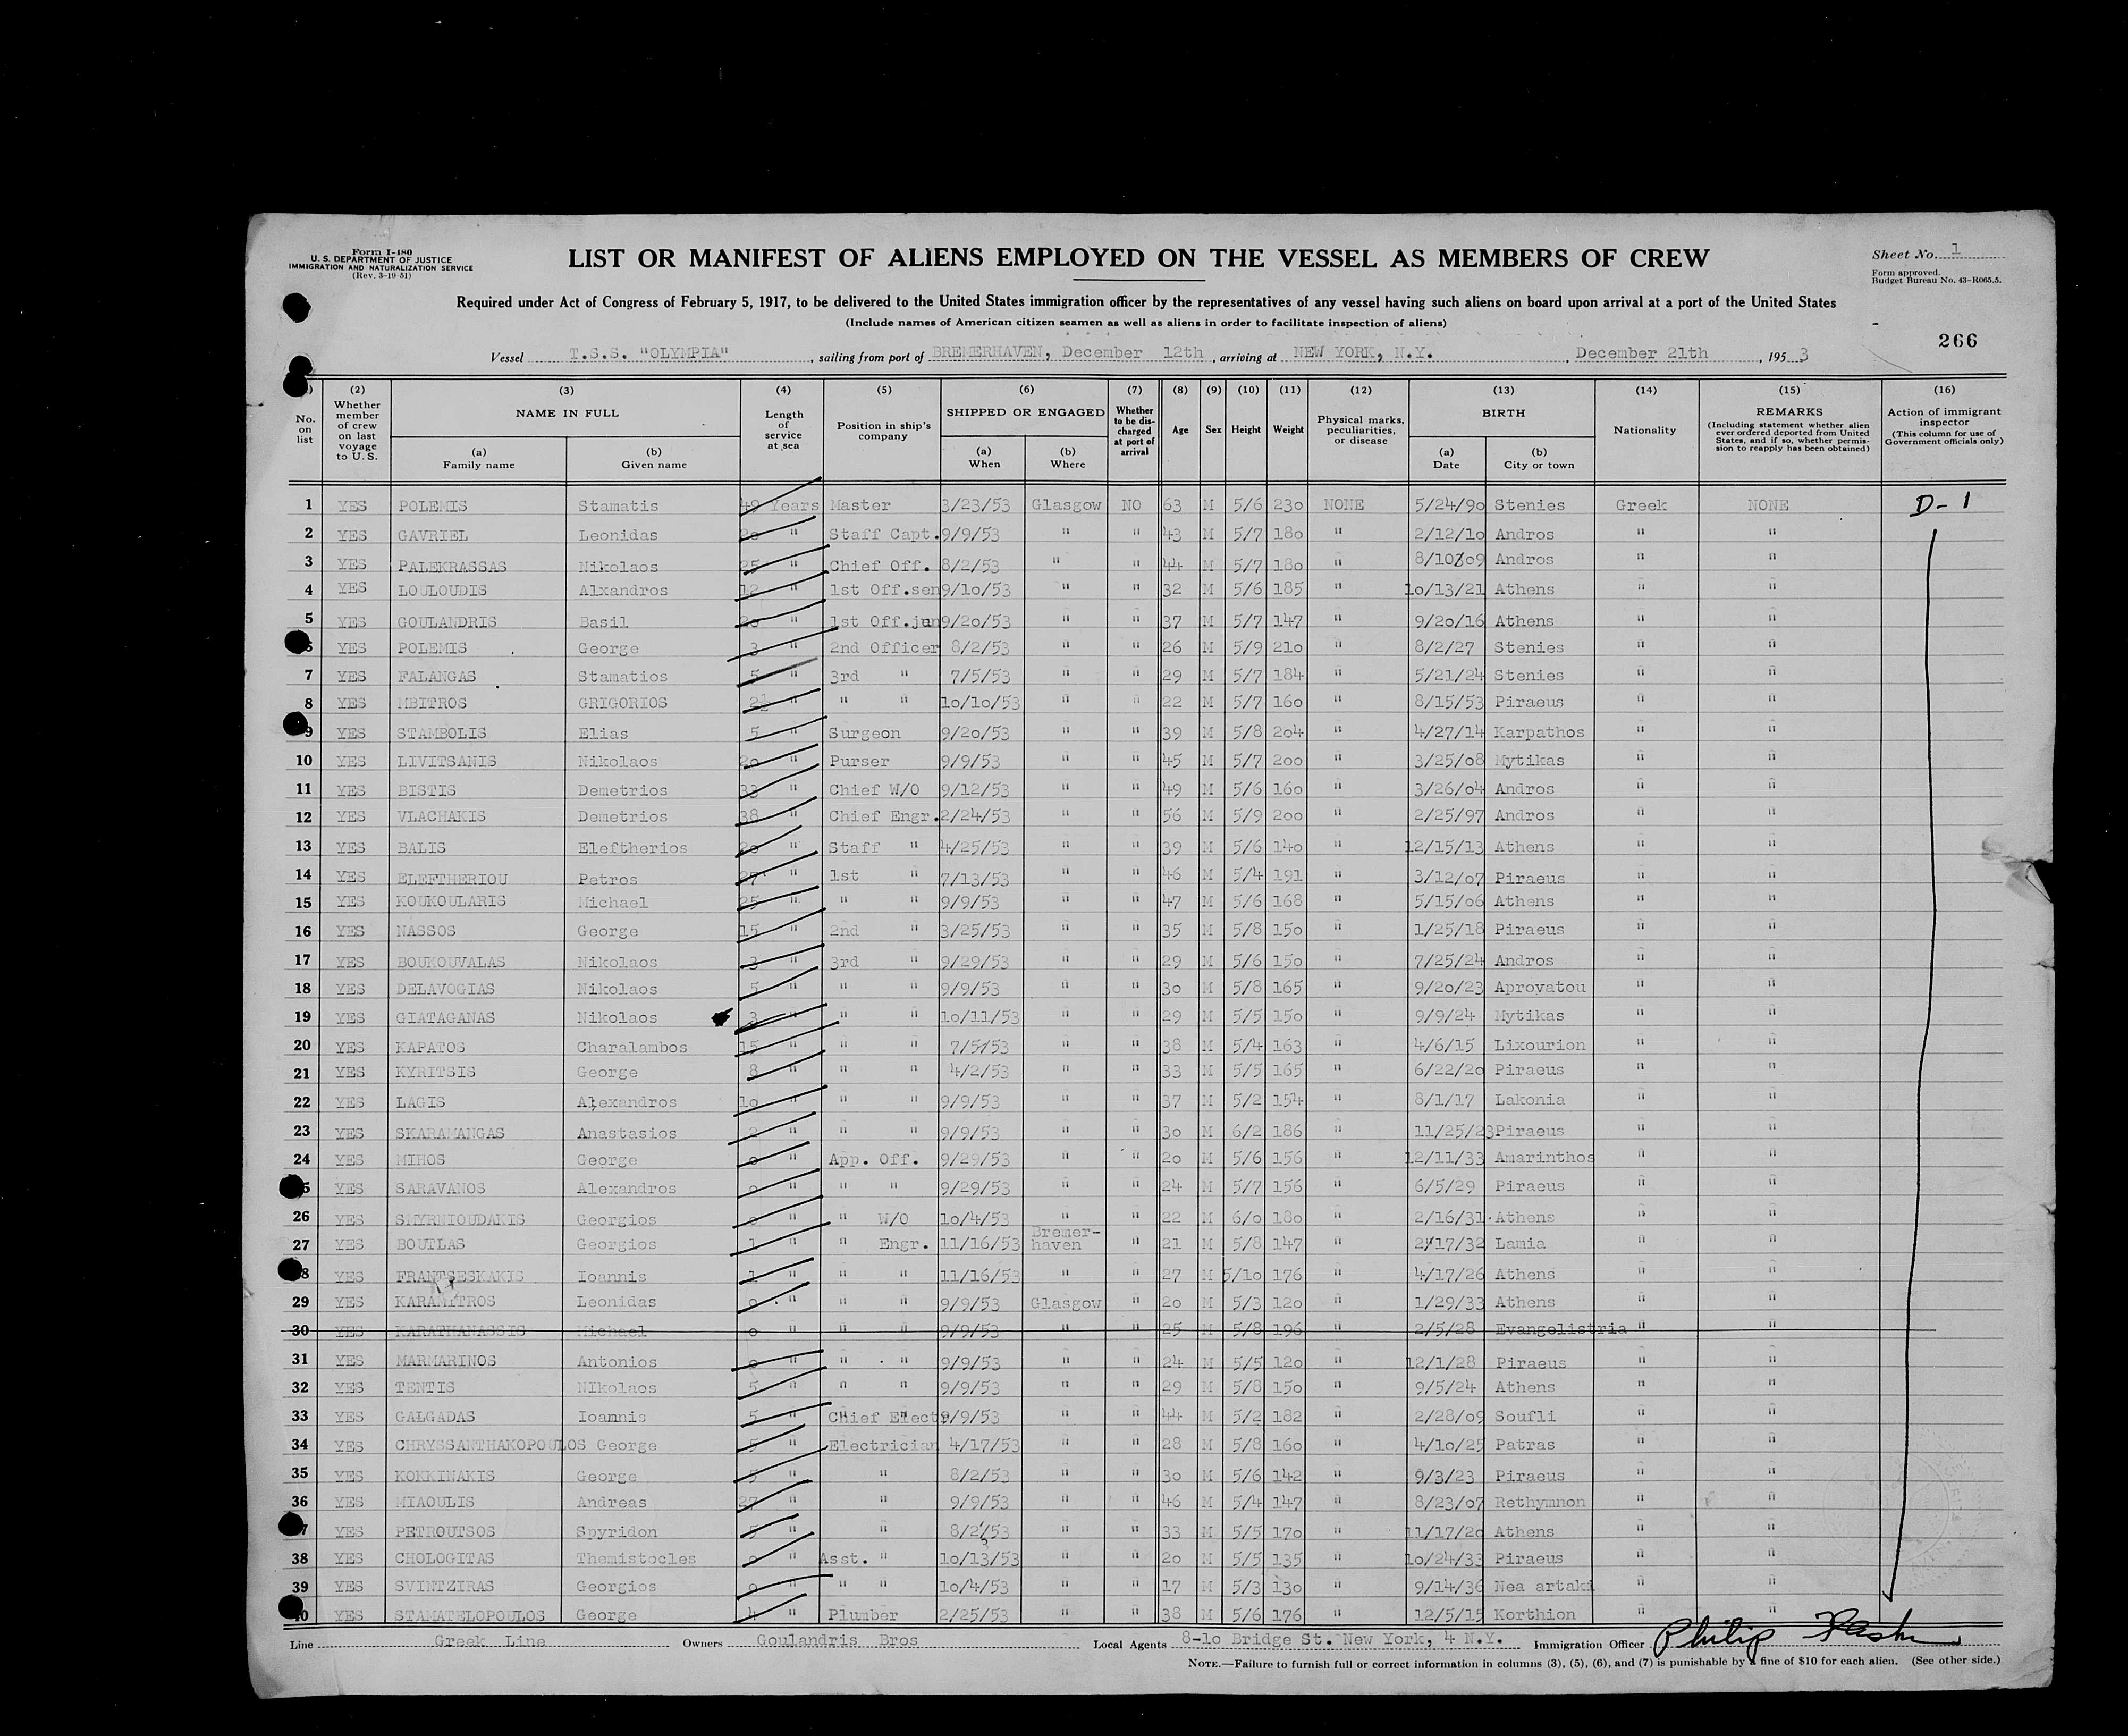 Form I-480
U. S. DEPARTMENT OF JUSTICE
IMMIGRATION AND NATURALIZATION SERVICE
(Rev. 3-19-51)
LIST OR MANIFEST OF ALIENS EMPLOYED ON THE VESSEL AS MEMBERS OF CREW
Sheet No. 1
Form approved.
Budget Bureau No. 43-R065.5.
Required under Act of Congress of February 5, 1917, to be delivered to the United States immigration officer by the representatives of any vessel having such aliens on board upon arrival at a port of the United States
(Include names of American citizen seamen as well as aliens in order to facilitate inspection of aliens)
266
Vessel T.S.S. "OLYMPIA", sailing from port of BREMERHAVEN, December 12th, arriving at NEW YORK, N.Y., December 21th, 1953
No. on list (2) Whether member of crew on last voyage to U. S. (3) NAME IN FULL (a) Family name (b) Given name (4) Length of service at sea (5) Position in ship's company (6) SHIPPED OR ENGAGED (a) When (b) Where (7) Whether to be discharged at port of arrival (8) Age (9) Sex (10) Height (11) Weight (12) Physical marks, peculiarities, or disease (13) BIRTH (a) Date (b) City or town (14) Nationality (15) REMARKS (Including statement whether alien ever ordered deported from United States, and if so, whether permission to reapply has been obtained) (16) Action of immigrant inspector (This column for use of Government officials only)
1 YES POLEMIS Stamatis 49 Years Master 3/23/53 Glasgow NO 63 M 5/6 230 NONE 5/24/90 Stenies Greek NONE D-1
2 YES GAVRIEL Leonidas 20 " Staff Capt. 9/9/53 " " 43 M 5/7 180 " 2/12/10 Andros " "
3 YES PALEKRASSAS Nikolaos 25 " Chief Off. 8/2/53 " " 44 M 5/7 180 " 8/10/09 Andros " "
4 YES LOULOUDIS Alxandros 12 " 1st Off.sen 9/10/53 " " 32 M 5/6 185 " 10/13/21 Athens " "
5 YES GOULANDRIS Basil 20 " 1st Off.jun 9/20/53 " " 37 M 5/7 147 " 9/20/16 Athens " "
6 YES POLEMIS George 3 " 2nd Officer 8/2/53 " " 26 M 5/9 210 " 8/2/27 Stenies " "
7 YES FALANGAS Stamatios 5 " 3rd " 7/5/53 " " 29 M 5/7 184 " 5/21/24 Stenies " "
8 YES MBITROS GRIGORIOS 2½ " " " 10/10/53 " " 22 M 5/7 160 " 8/15/53 Piraeus " "
9 YES STAMBOLIS Elias 5 " Surgeon 9/20/53 " " 39 M 5/8 204 " 4/27/14 Karpathos " "
10 YES LIVITSANIS Nikolaos 20 " Purser 9/9/53 " " 45 M 5/7 200 " 3/25/08 Mytikas " "
11 YES BISTIS Demetrios 33 " Chief W/O 9/12/53 " " 49 M 5/6 160 " 3/26/04 Andros " "
12 YES VLACHAKIS Demetrios 38 " Chief Engr. 2/24/53 " " 56 M 5/9 200 " 2/25/97 Andros " "
13 YES BALIS Eleftherios 20 " Staff " 4/25/53 " " 39 M 5/6 140 " 12/15/13 Athens " "
14 YES ELEFTHERIOU Petros 27 " 1st " 7/13/53 " " 46 M 5/4 191 " 3/12/07 Piraeus " "
15 YES KOUKOULARIS Michael 25 " " " 9/9/53 " " 47 M 5/6 168 " 5/15/06 Athens " "
16 YES NASSOS George 15 " 2nd " 3/25/53 " " 35 M 5/8 150 " 1/25/18 Piraeus " "
17 YES BOUKOUVALAS Nikolaos 3 " 3rd " 9/29/53 " " 29 M 5/6 150 " 7/25/24 Andros " "
18 YES DELAVOGIAS Nikolaos 5 " " " 9/9/53 " " 30 M 5/8 165 " 9/20/23 Aprovatou " "
19 YES GIATAGANAS Nikolaos 3 " " " 10/11/53 " " 29 M 5/5 150 " 9/9/24 Mytikas " "
20 YES KAPATOS Charalambos 15 " " " 7/5/53 " " 38 M 5/4 163 " 4/6/15 Lixourion " "
21 YES KYRITSIS George 8 " " " 4/2/53 " " 33 M 5/5 165 " 6/22/20 Piraeus " "
22 YES LAGIS Alexandros 10 " " " 9/9/53 " " 37 M 5/2 154 " 8/1/17 Lakonia " "
23 YES SKARAMANGAS Anastasios 2 " " " 9/9/53 " " 30 M 6/2 186 " 11/25/23 Piraeus " "
24 YES MIHOS George 0 " App. Off. 9/29/53 " " 20 M 5/6 156 " 12/11/33 Amarinthos " "
25 YES SARAVANOS Alexandros 0 " " " 9/29/53 " " 24 M 5/7 156 " 6/5/29 Piraeus " "
26 YES SMYRNIOUDAKIS Georgios 0 " " W/O 10/4/53 " " 22 M 6/0 180 " 2/16/31 Athens " "
27 YES BOUTLAS Georgios 1 " " Engr. 11/16/53 Bremer-haven " 21 M 5/8 147 " 2/17/32 Lamia " "
28 YES FRANTSESKAKIS Ioannis 1 " " " 11/16/53 " " 27 M 5/10 176 " 4/17/26 Athens " "
29 YES KARAMITROS Leonidas 0 " " " 9/9/53 Glasgow " 20 M 5/3 120 " 1/29/33 Athens " "
30 YES KARATHANASSIS Michael 0 " " " 9/9/53 " " 25 M 5/8 196 " 2/5/28 Evangelistria " "
31 YES MARMARINOS Antonios 0 " " " 9/9/53 " " 24 M 5/5 120 " 12/1/28 Piraeus " "
32 YES TENTIS NIkolaos 5 " " " 9/9/53 " " 29 M 5/8 150 " 9/5/24 Athens " "
33 YES GALGADAS Ioannis 5 " Chief Elect. 9/9/53 " " 44 M 5/2 182 " 2/28/09 Soufli " "
34 YES CHRYSSANTHAKOPOULOS George 5 " Electrician 4/17/53 " " 28 M 5/8 160 " 4/10/25 Patras " "
35 YES KOKKINAKIS George 5 " " 8/2/53 " " 30 M 5/6 142 " 9/3/23 Piraeus " "
36 YES MIAOULIS Andreas 27 " " 9/9/53 " " 46 M 5/4 147 " 8/23/07 Rethymnon " "
37 YES PETROUTSOS Spyridon 5 " " 8/2/53 " " 33 M 5/5 170 " 11/17/20 Athens " "
38 YES CHOLOGITAS Themistocles 0 " Asst. " 10/13/53 " " 20 M 5/5 135 " 10/24/33 Piraeus " "
39 YES SVINTZIRAS Georgios 0 " " " 10/4/53 " " 17 M 5/3 130 " 9/14/36 Nea artaki " "
40 YES STAMATELOPOULOS George 4 " Plumber 2/25/53 " " 38 M 5/6 176 " 12/5/15 Korthion " "
Line Greek Line Owners Goulandris Bros Local Agents 8-10 Bridge St. New York, 4 N.Y. Immigration Officer Philip
NOTE.—Failure to furnish full or correct information in columns (3), (5), (6), and (7) is punishable by a fine of $10 for each alien. (See other side.)